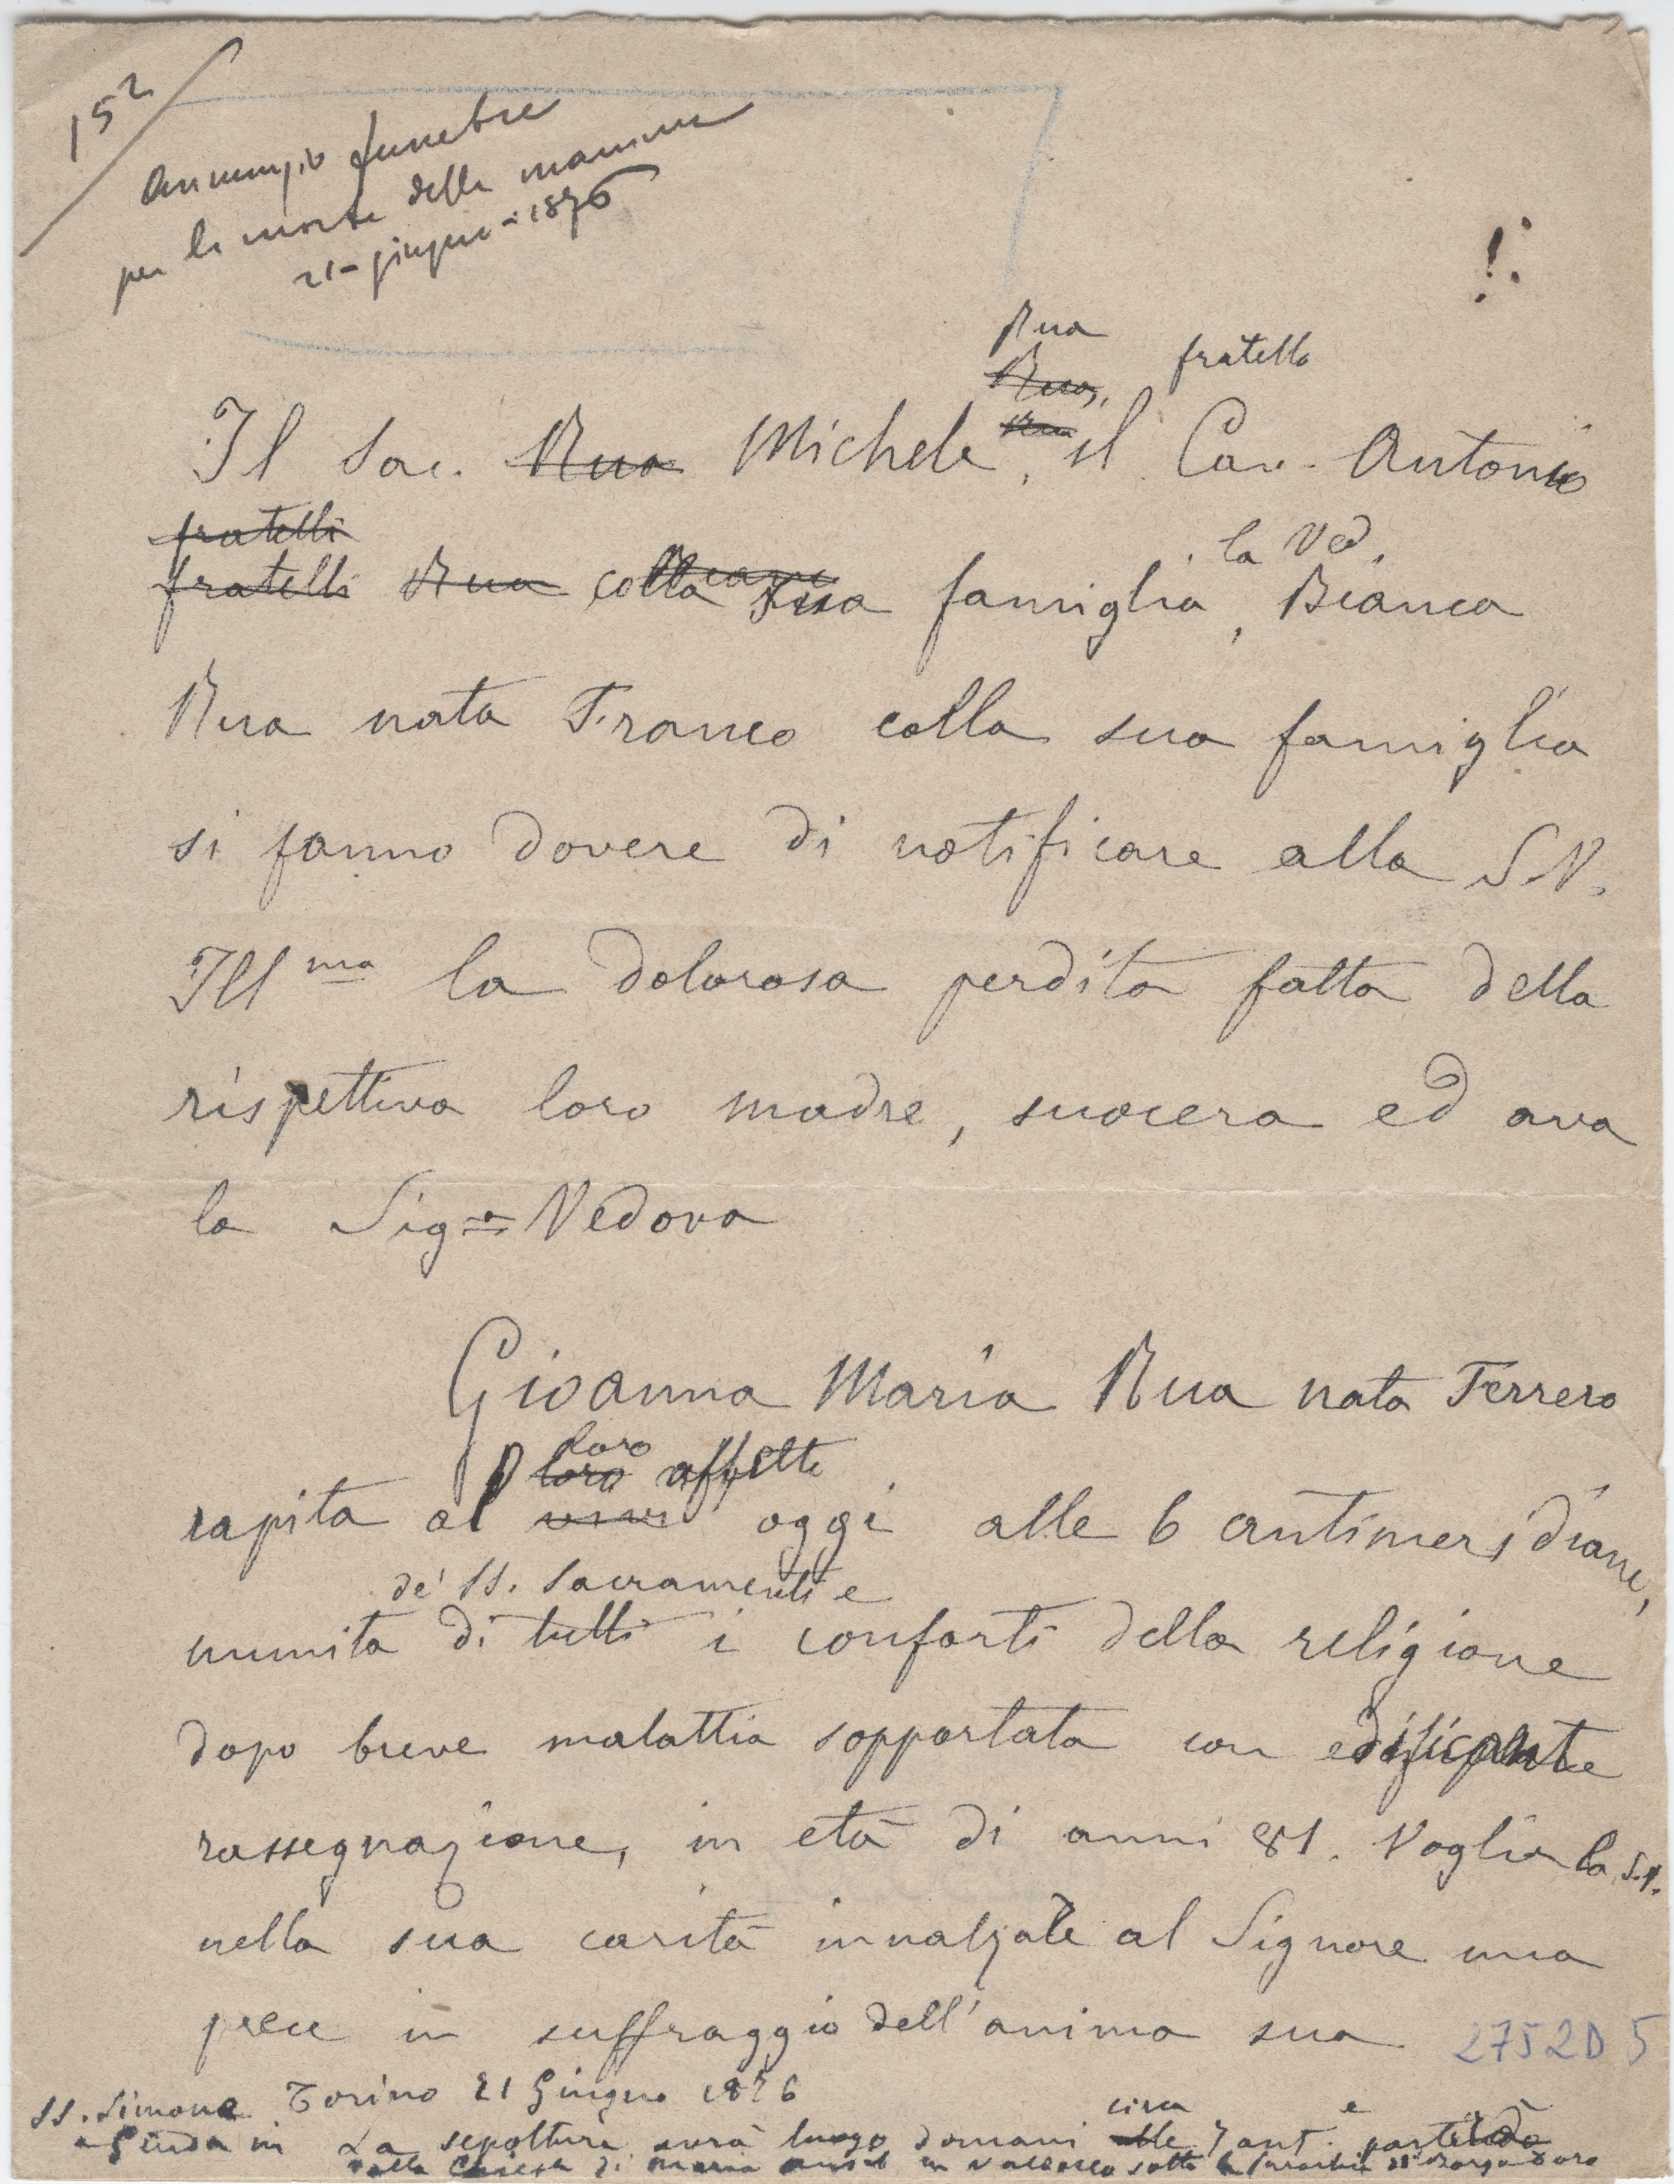 152
Annunzio funebre
per la morte della mamma
21 - giugno - 1876
!
Rua
Rua, fratello
Il Sac. Rua Michele, il Cav. Antonio
fratelli
fratelli Rua colla sua famiglia, la Ved. Bianca
Rua nata Franco colla sua famiglia
si fanno dovere di notificare alla S.V.
Ill.ma la dolorosa perdita fatta della
rispettiva loro madre, suocera ed ava
la Sig.a Vedova
Giovanna Maria Rua nata Ferrero
loro
loro affetto
rapita al vivi oggi alle 6 antimeridiane,
de' SS. Sacramenti e
munita di tutti i conforti della religione
dopo breve malattia sopportata con edificante
rassegnazione, in età di anni 81. Voglia la S.V.
nella sua carità innalzare al Signore una
prece in suffraggio dell'anima sua
2752D5
SS. Simone Torino 21 Giugno 1876
circa e
e Giuda in La sepoltura avrà luogo domani alle 7 ant. partendo
dalla Chiesa di Maria Aus. in Valdocco sotto la Parochia di Borgo Dora